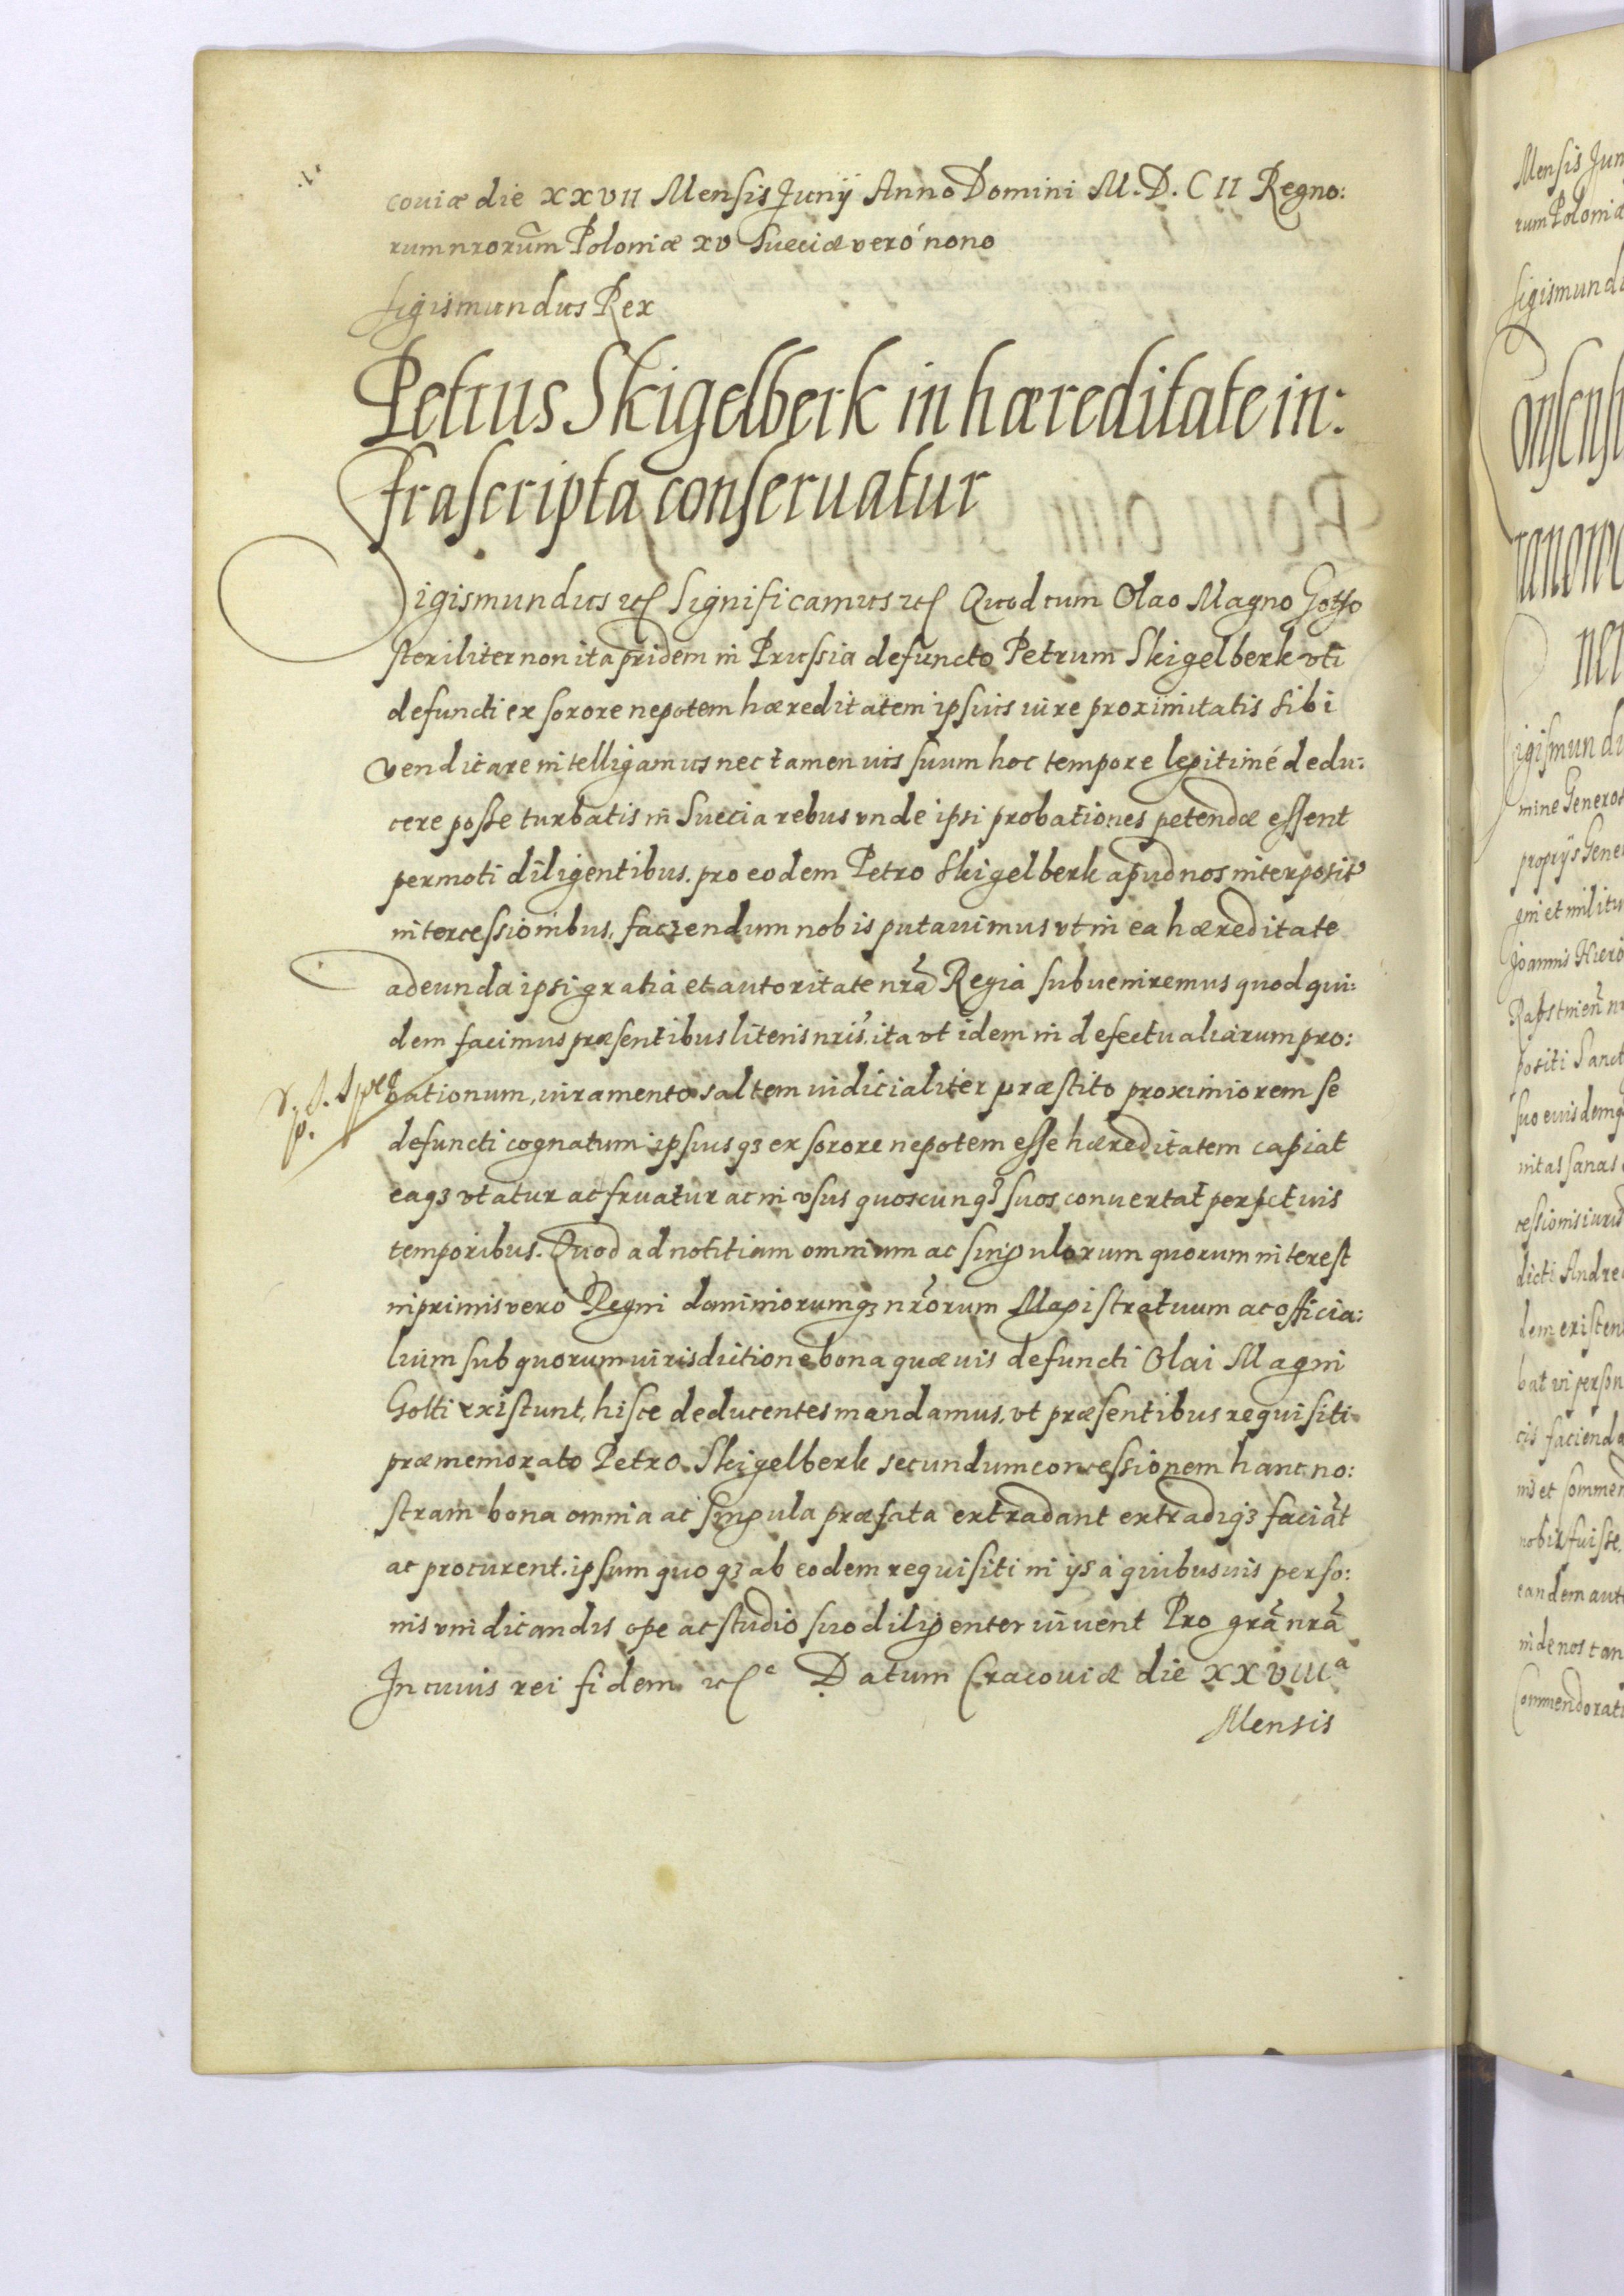 coviæ die XXVII Mensis Junij Anno Domini M.D.CII Regno:
rum nrorum Poloniæ XV Sueciæ veró nono
Sigismundus Rex
Petrus Skigelberk in hæreditate in:
frascripta conseruatur
Sigismundus etc Significamus etc Quod cum Olao Magno Gotso
steriliter non ita pridem in Prussia defuncto Petrum Skigelberk vti
defuncti ex sorore nepotem hæreditatem ipsius iure proximitatis sibi
vendicare intelligamus nec tamen ius suum hoc tempore legitimé dedu:
cere posse turbatis in Suecia rebus vnde ipsi probationes petendæ essent
permoti diligentibus. pro eodem Petro Skigelberk apud nos interposit⁹
intercessionibus, faciendum nobis putauimus vt in ea hæreditate
adeunda ipsi gratia et autoritate nrã Regia subueniremus quod qui:
dem facimus præsentibus literis nris, ita vt idem in defectu aliarum pro:
bationum, iuramento saltem iudicialiter præstito proximiorem se
defuncti cognatum ipsiusqꝫ ex sorore nepotem esse hæreditatem capiat
eaqꝫ vtatur ac fruatur ac in vsus quoscunqꝫ suos conuertat perpetuis
temporibus. Quod ad notitiam omnium ac singulorum quorum interest
inprimis veró Regni dominiorumqꝫ nrõrum Magistratuum ac officia:
lium sub quorum iurisdictione bona quæuis defuncti Olai Magni
Gotti existunt, hisce deducentes mandamus, vt præsentibus requisiti
præmemorato Petro Skigelberk secundum concessionem hanc no:
stram bona omnia ac singula præfata extradant extradiqꝫ faciãt
ac procurent, ipsum quoqꝫ ab eodem requisiti in ijs a quibusuis perso:
nis vindicandis ope ac studio suo diligenter iuuent Pro grã nrã
In cuius rei fidem etc Datum Cracouiæ die XXVIII<sup>a</sup>
Mensis